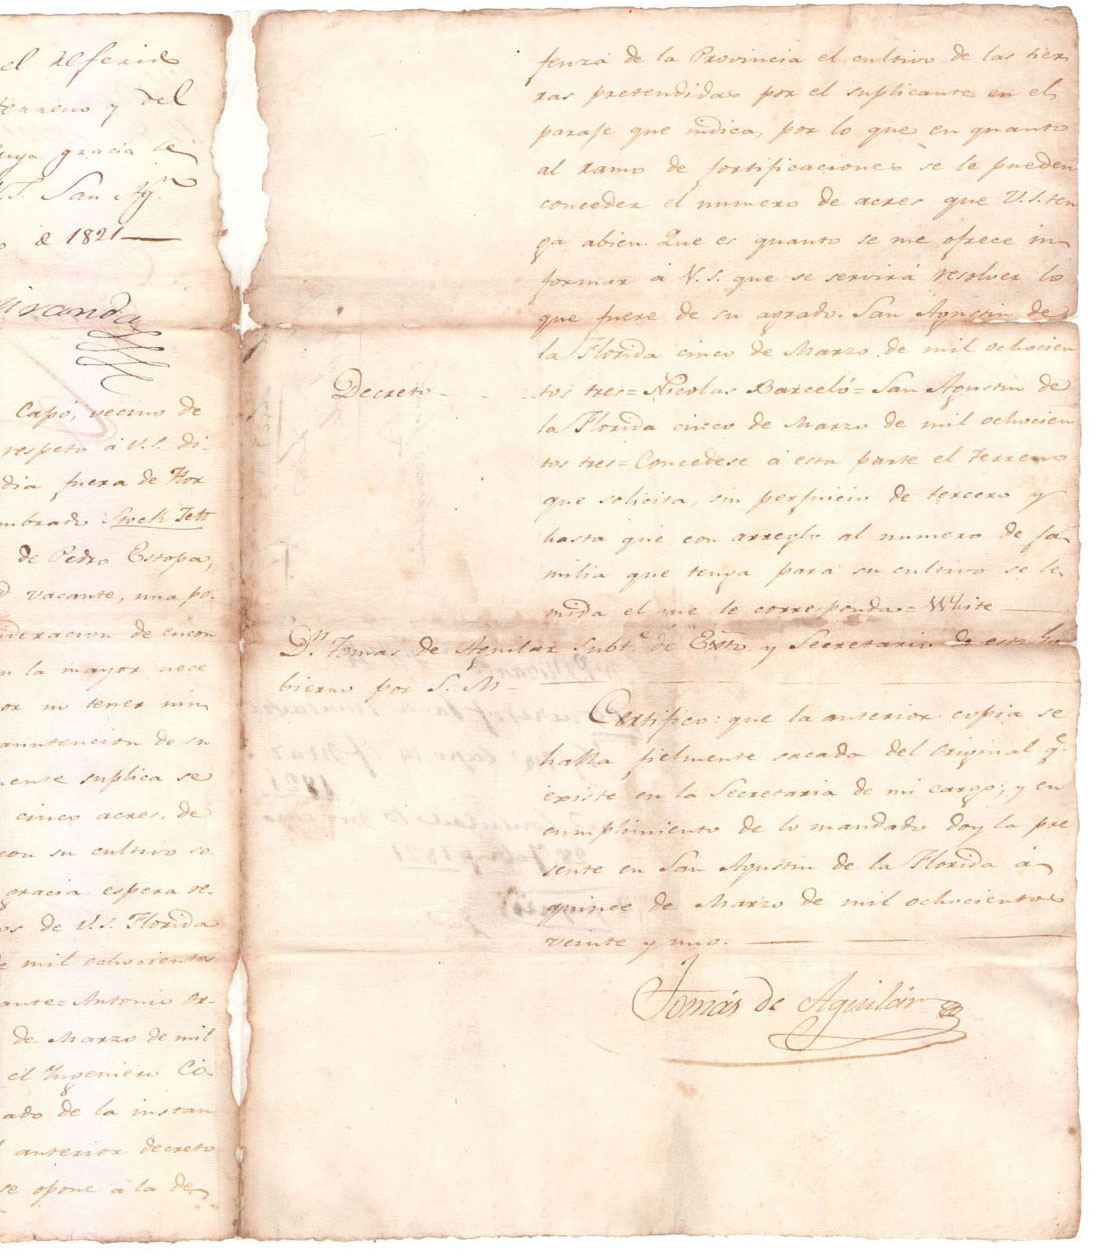 el Alferie
terreno y del
cuya gracia se
V.S. San Ag.n
o de 1821
Miranda
Capo, vecino de
respeto á V.S. di-
dia fuera de Hor
mbrado Stock Jett
de Pedro Estopa,
vacante, una po-
sideracion de encon
n la mayor nece
or no tener nin
anutencion de su
mente suplica se
cinco acres, de
con su cultivo so.
gracia espera re-
os de V.S. Florida
de mil ochocientos
ante= Antonio Or-
de Marzo de mil
el Yngeniero Co-
ado de la instan
anterior decreto
se opone á la de
fenza de la Provincia el cultivo de las tier
ras pretendidas por el suplicante en el
paraje que indica, por lo que en quanto
al ramo de fortificaciones se le pueden
conceder el numero de acres que V.S. ten
ga abien. Que es quanto se me ofrece in
formar á V.S. que se servirá resolver lo
que fuere de su agrado. San Agustin de
la Florida cinco de Marzo de mil ochocien
Decreto - - - tos tres= Nicolas Barceló= San Agustin de
la Florida cinco de Marzo de mil ochocien
tos tres= Concedese á esta parte el terreno
que solicita, sin perjuicio de tercero y
hasta que con arreglo al numero de fa
milia que tenga para su cultivo se le
mida el que le corresponda= White
Dn. Tomas de Aguilar Subte. de Exto. y Secretario de este Go
bierno por S. M
Certifico: que la anterior copia se
halla fielmente sacada del original qe.
existe en la Secretaria de mi cargo; y en
cumplimiento de lo mandado doy la pre
sente en San Agustin de la Florida á
quince de Marzo de mil ochocientos
veinte y uno.
Tomás de Aguilár